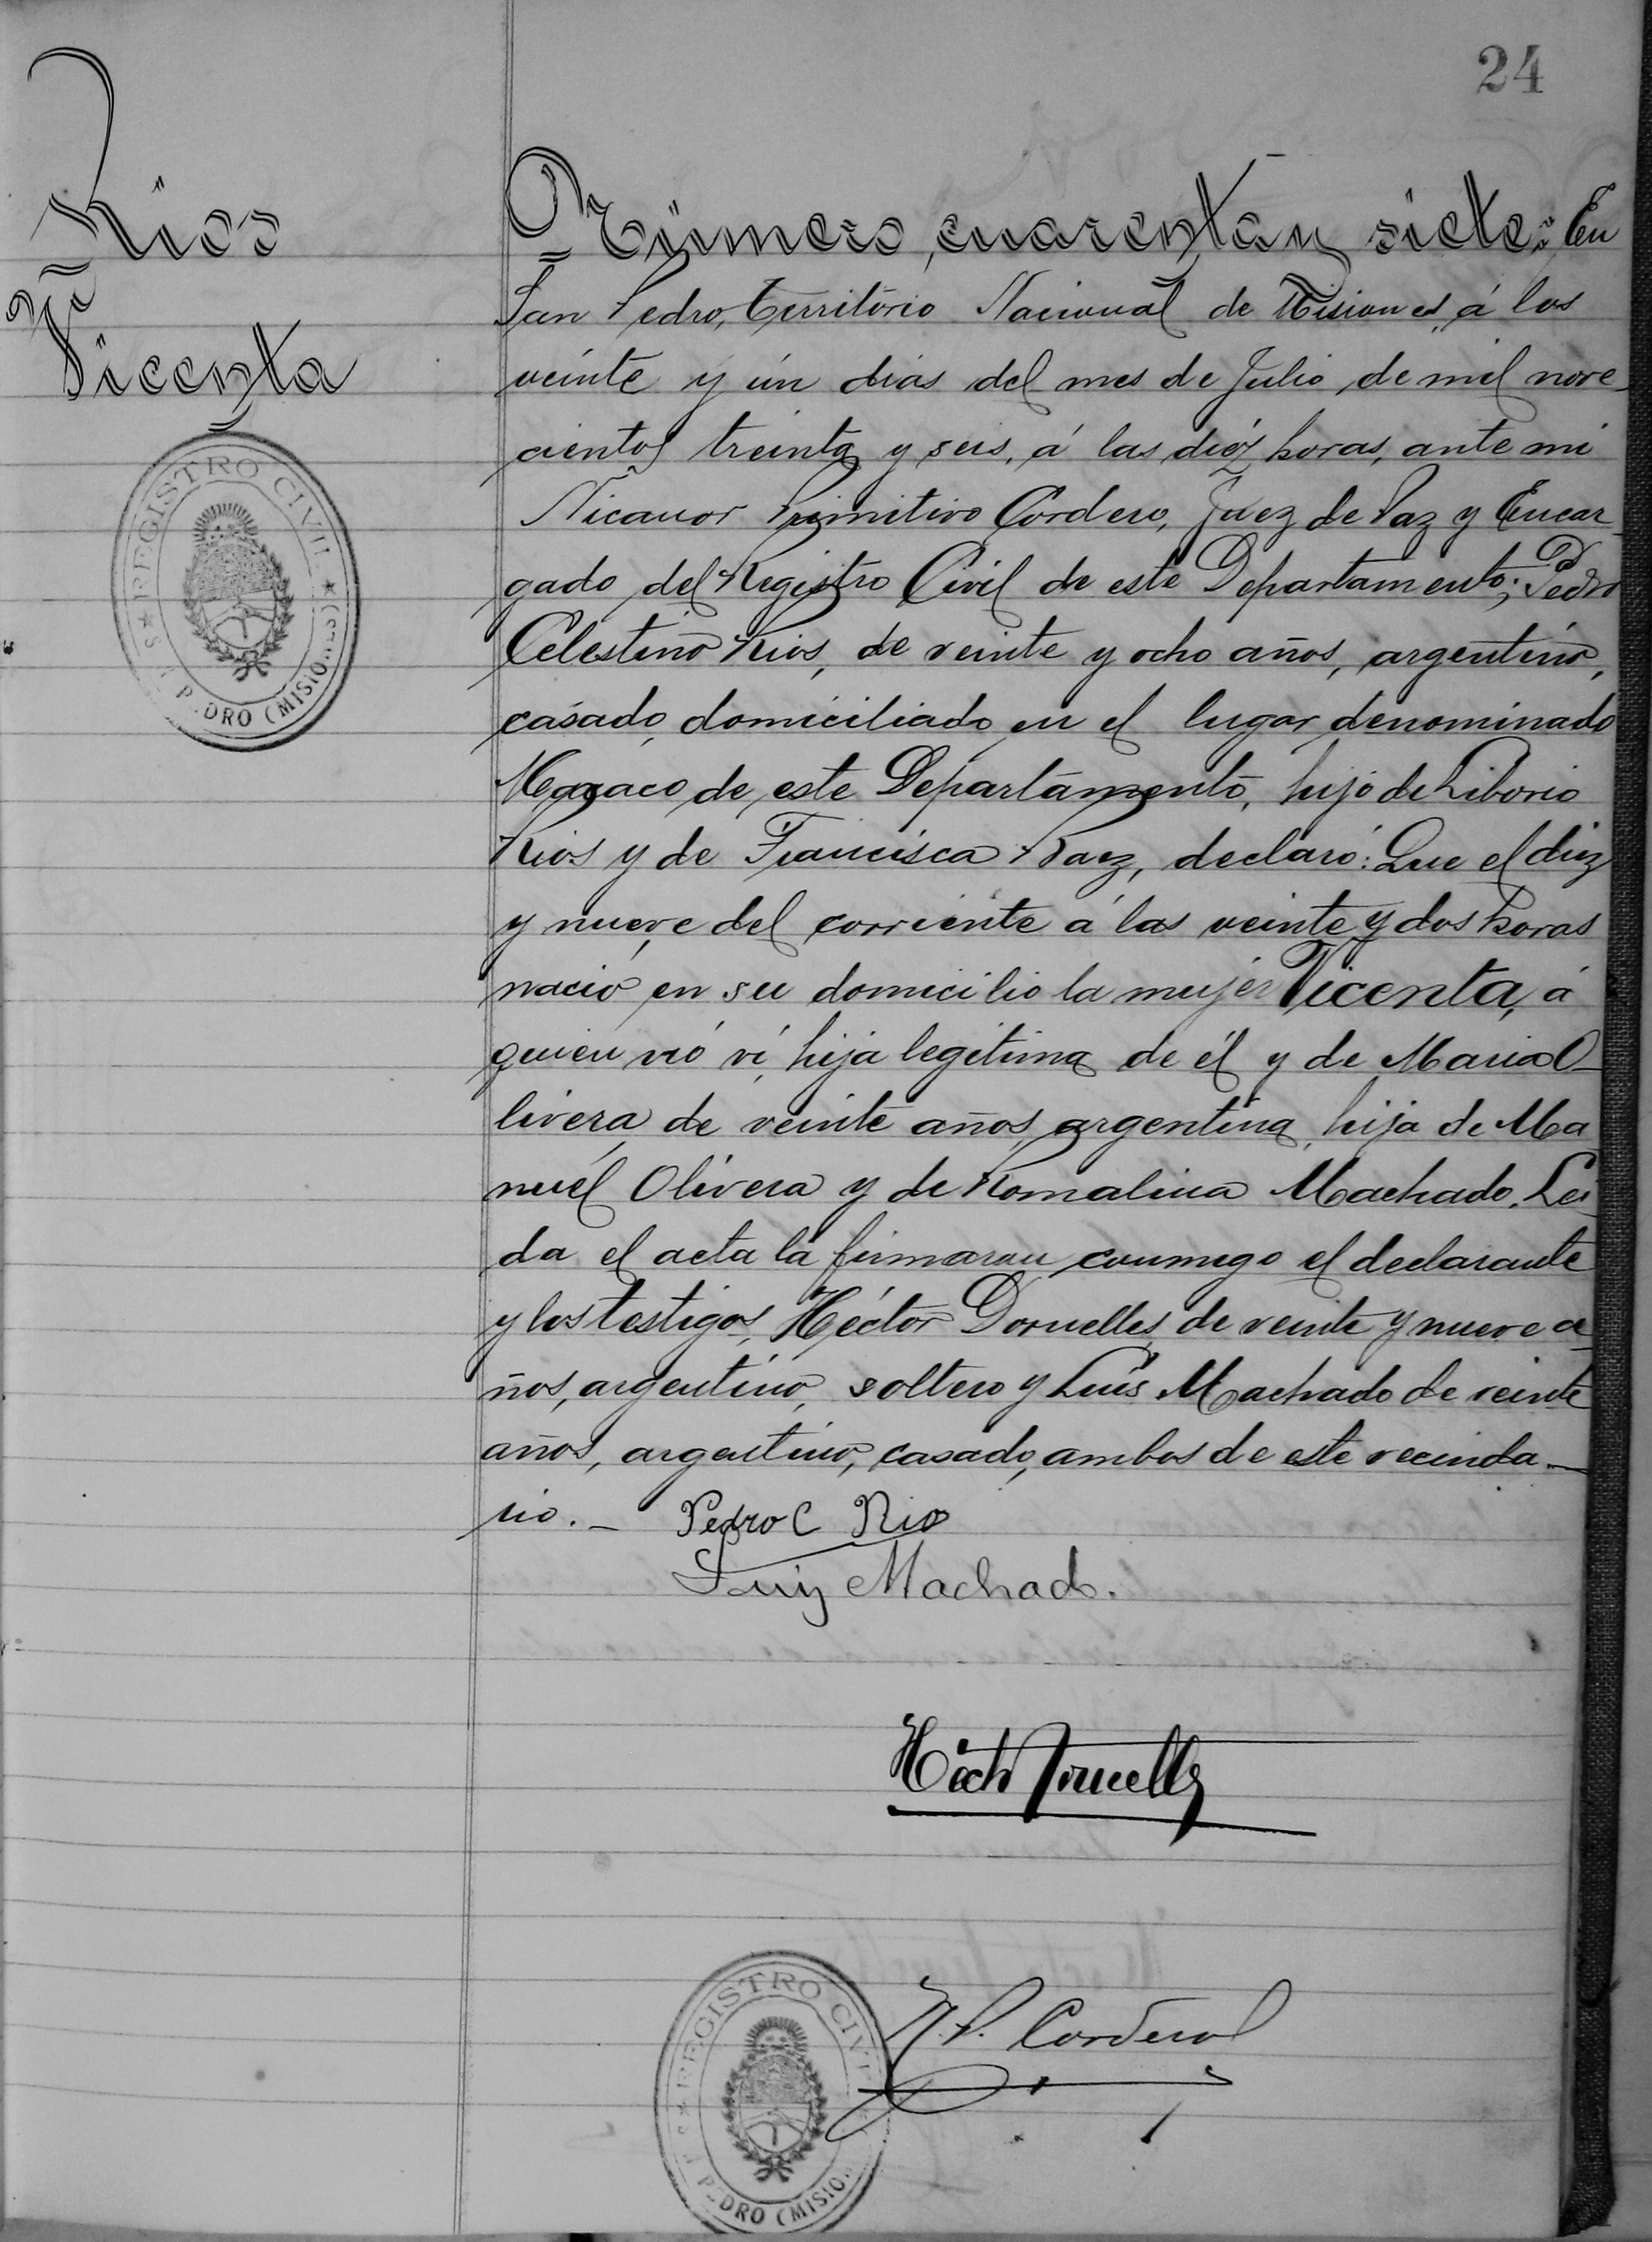 24
Rios
Vicenta
Número cuarenta y siete: En
San Pedro, Território Nacional de Misiones, á los
veinte y ún dias del mes de Julio de mil nove-
cientos treinta y seis, á las diéz horas, ante mi
Nicanor Primitivo Cordero, Juez de Paz y Encar-
gado del Registro Civil de este Departamento; Pedro
Celestino Rios, de veinte y ocho años, argentino,
casado, domiciliado en el lugar denominado
de este Departamento, hijo de Liborio
Rios y de Francisca Paez, declaró: Que el diez
y nueve del corriente á las veinte y dos horas
nació en su domicilio la mujer Vicenta, á
quien vió hija legítima de él y de Maria O-
livera de veinte años, argentina, hija de Ma
nuel Olivera y de Romalina Machado. Lei-
da el acta la firmaron conmigo el declarante
y los testigos, Héctor Dornelles de veinte y nueve a-
ños, argentino, soltero y Luis Machado de veinte
años, argentino, casado, ambos de este vecinda-
rio.- Pedro C Rios
Luiz Machado.
Héctor Dornelles
N.P. Cordero
REGISTRO CIVIL
S PEDRO (MISIO
REGISTRO CIVIL
PEDRO (MISIO